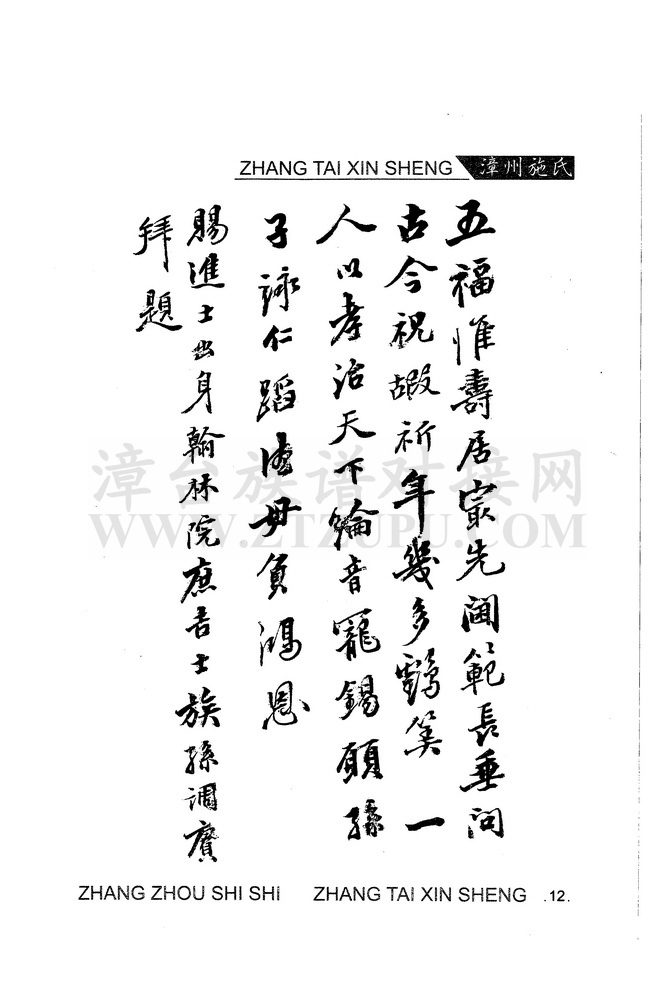 ZHANG TAI XIN SHENG 漳州施氏
五福惟壽居最先閫範長垂問
古今祝嘏祈年幾多鶴筭一
人以孝治天下綸音寵錫願孫
子詠仁蹈德毋負鴻恩
賜進士出身翰林院庶吉士族孫調賡
拜題
漳台族谱对接网
WWW.ZTZUPU.COM
ZHANG ZHOU SHI SHI ZHANG TAI XIN SHENG .12.